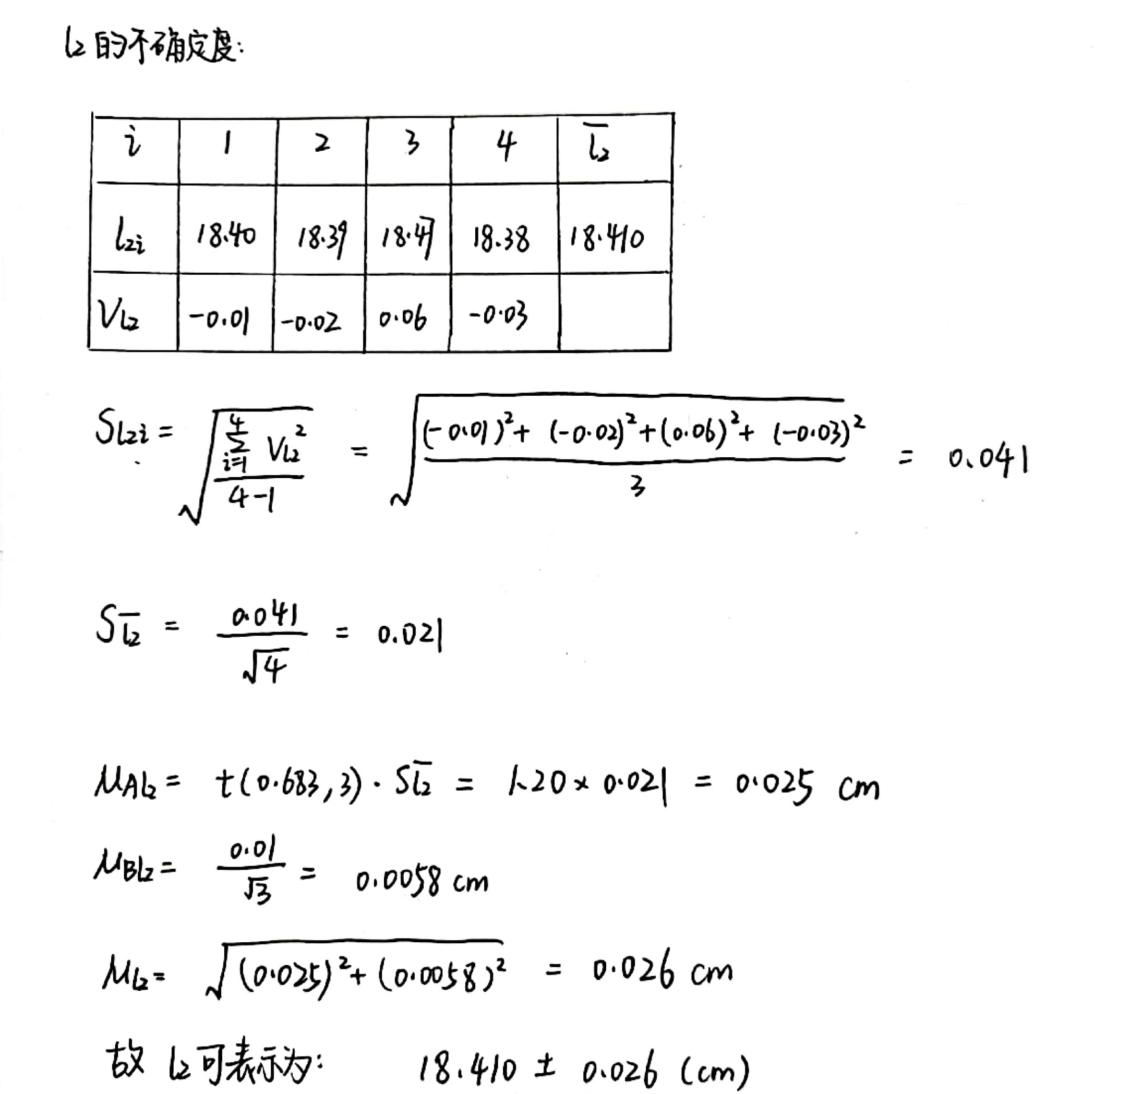 l₂的不确定度:
i 1 2 3 4 l̅₂
l₂ᵢ 18.40 18.39 18.47 18.38 18.410
Vl₂ -0.01 -0.02 0.06 -0.03
Sl₂ᵢ = √(∑ᵢ₌₁⁴ Vl₂² / (4-1)) = √(((-0.01)²+(-0.02)²+(0.06)²+(-0.03)²) / 3) = 0.041
Sl̅₂ = 0.041/√4 = 0.021
μAl₂ = t(0.683,3)·Sl̅₂ = 1.20×0.021 = 0.025 cm
μBl₂ = 0.01/√3 = 0.0058 cm
μl₂ = √((0.025)²+(0.0058)²) = 0.026 cm
故 l₂可表示为: 18.410 ± 0.026 (cm)